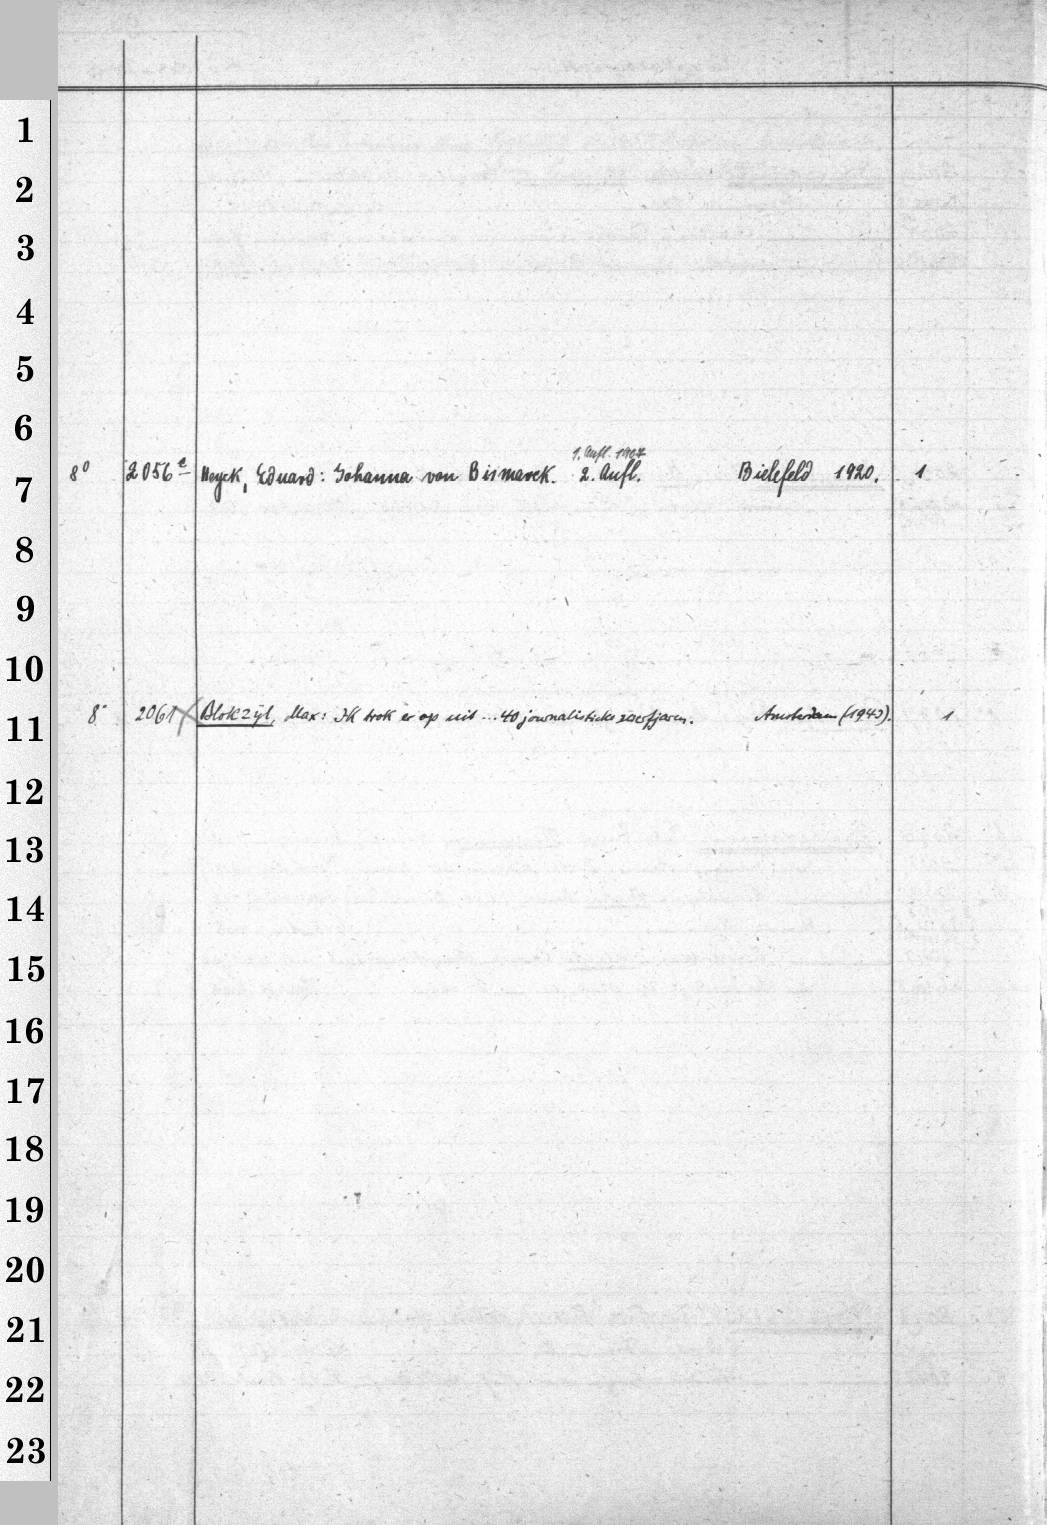 1
2
3
4
5
6
1. Aufl. 1907
7 8⁰ 2056ᵉ Heyck, Eduard: Johanna von Bismarck. 2. Aufl. Bielefeld 1920. 1
8
9
10
11 8⁰ 2061 Blokzijl, Max: Ik trok er op uit ... 40 journalistieke zwerfjaren. Amsterdam (1943). 1
12
13
14
15
16
17
18
19
20
21
22
23